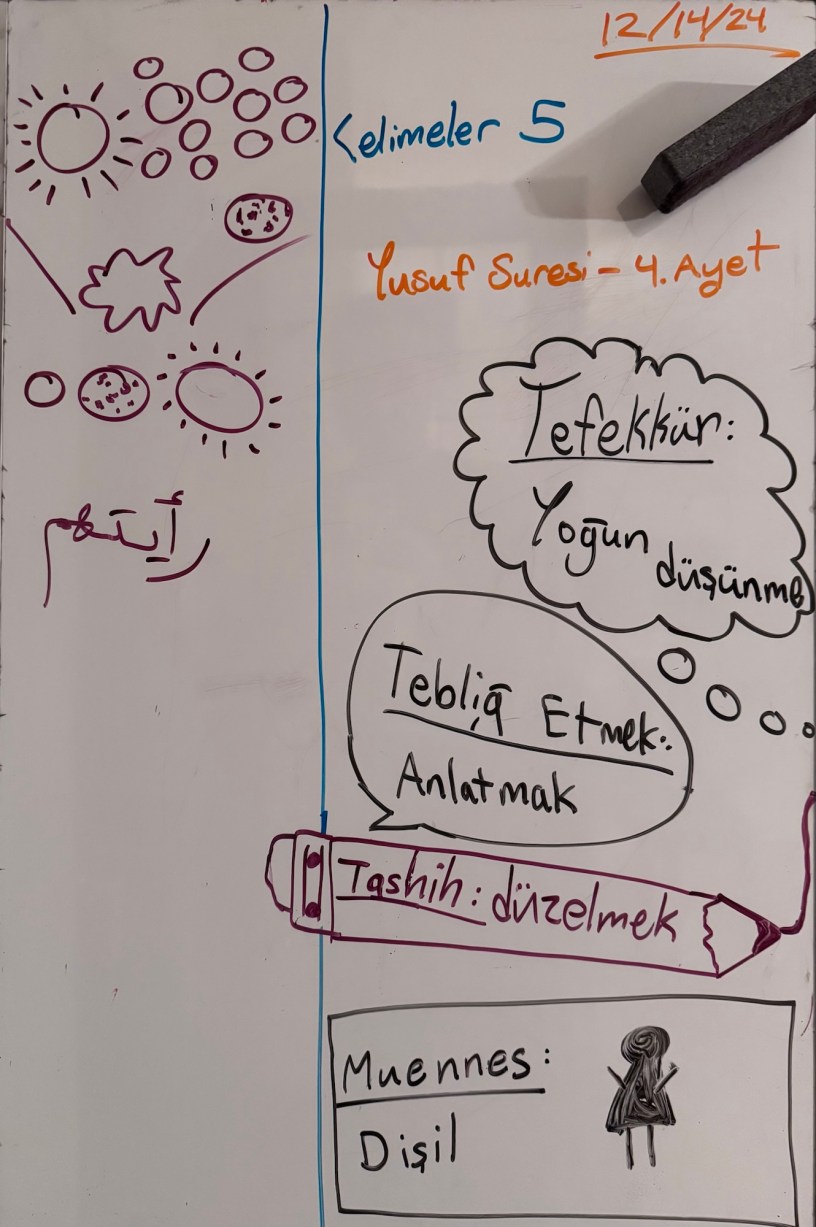 12/14/24
Kelimeler 5
Yusuf Suresi - 4. Ayet
Tefekkür:
Yoğun düşünme
Tebliğ Etmek:
Anlatmak
Tashih: düzelmek
Muennes:
Dişil
رأيتهم